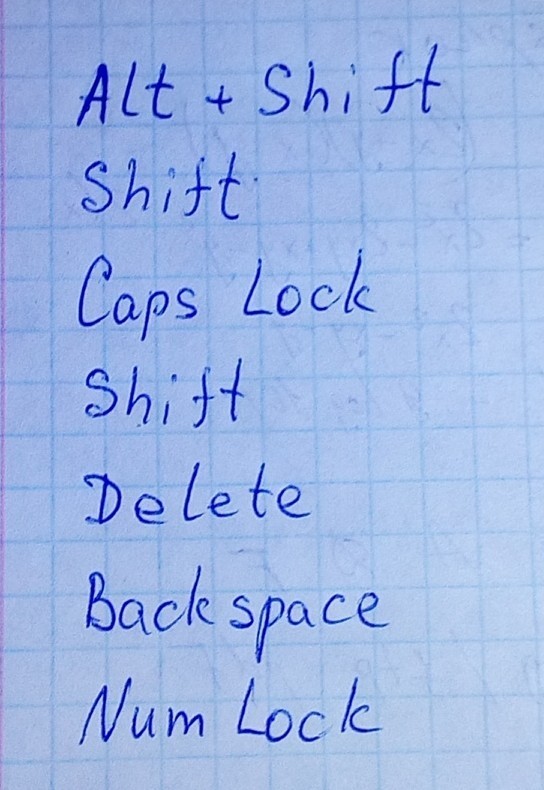 Alt + Shift
Shift
Caps Lock
Shift
Delete
Backspace
Num Lock